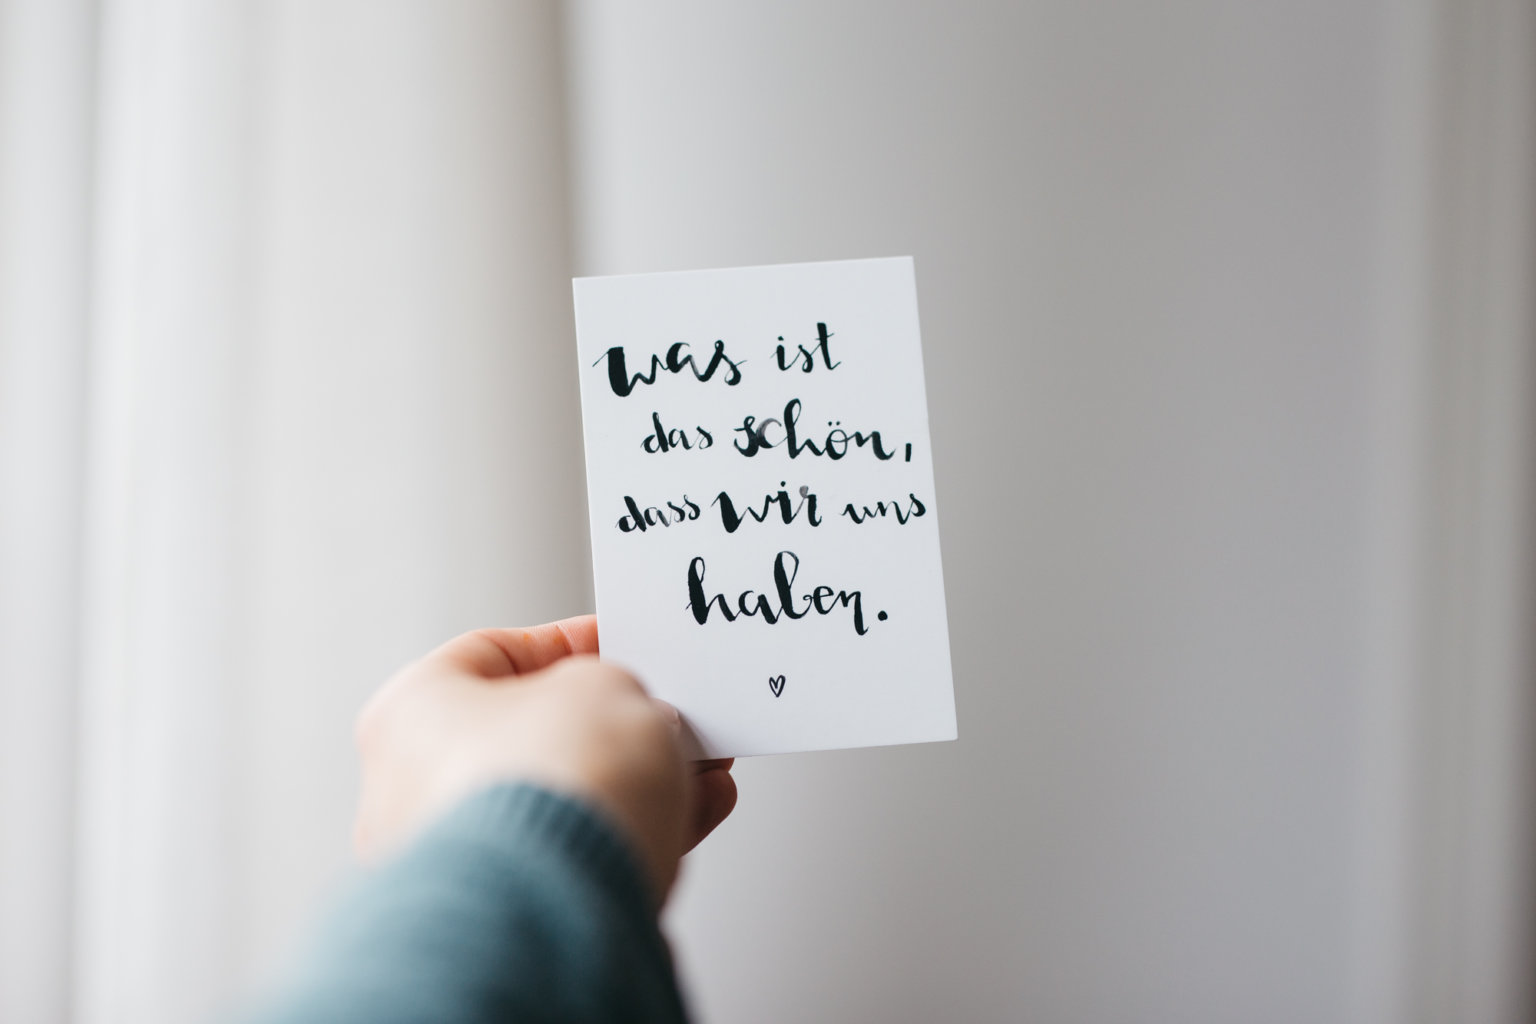 was ist
das schön,
dass wir uns
haben.